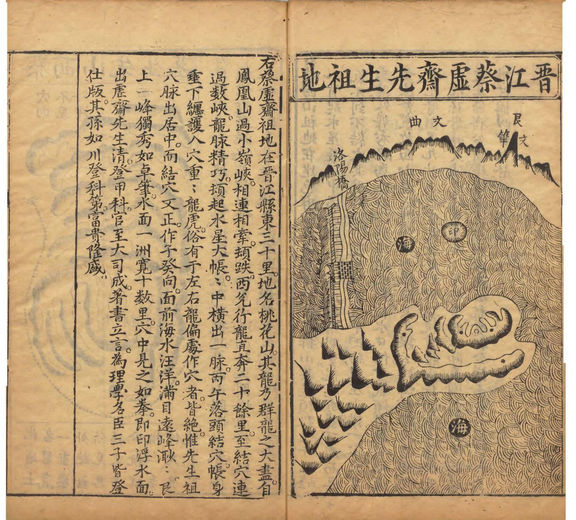 晋江蔡虛齋先生祖地
艮文筆
文曲
洛陽橋
印
海
海
右蔡虛齋祖地在晋江縣東三十里。地名桃花山。其龍乃群龍之大盡。自
鳳凰山過小嶺峽相連相牽。頓跌西兊行龍直奔二十餘里至結穴連
過数峽。龍脉精巧。頓起水星大帳〻中橫出一脉。丙午落頭結穴。帳身
垂下纏護入穴重〻龍虎。俗有于左右龍偏處作穴者。皆絶。惟先生祖
穴脉出居中。而結穴又正。作子癸向。面前海水汪洋。滿目遠峰〻艮
上一峰獨秀如卓筆。水面一洲寬十数里。穴中見之如拳。即印浮水面。
出虛齋先生清。登甲科。官至大司成。著書立言。為理學名臣。三子皆登
仕版。其孫如川登科第。富貴隆盛。